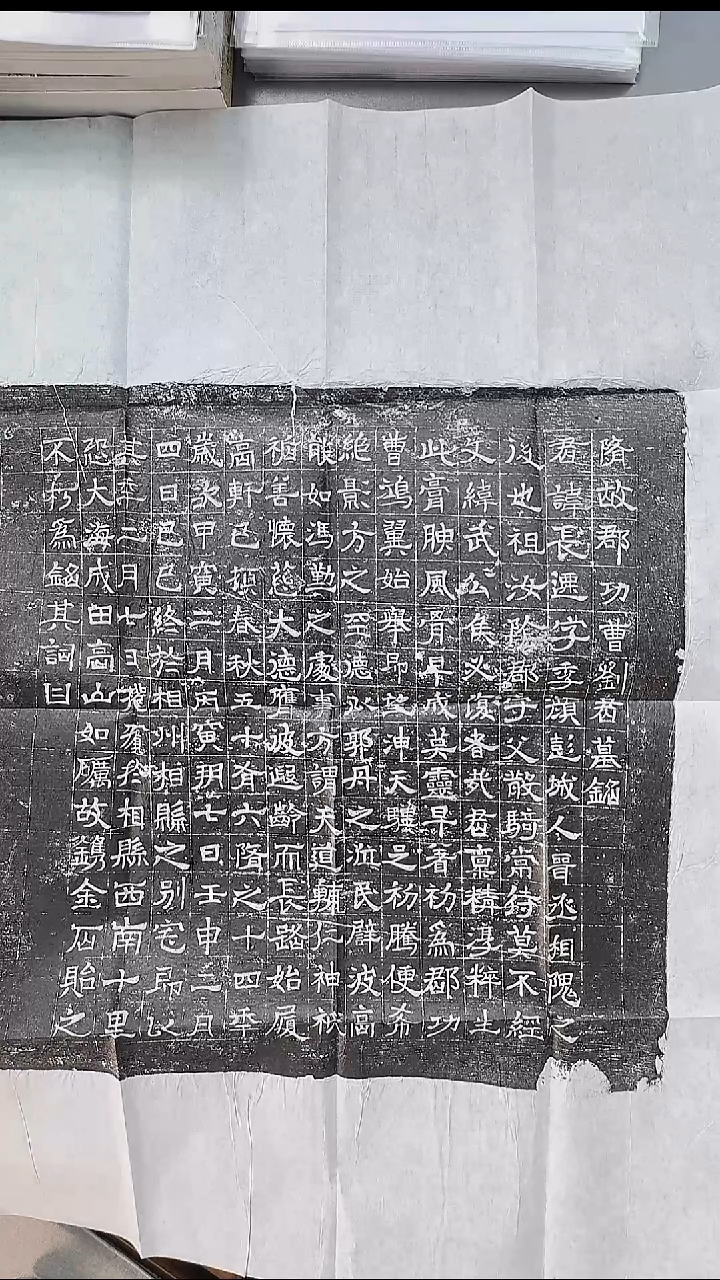 隋故郡功曹劉君墓銘
君諱長遷字季頎彭城人晉丞相隗之
後也祖汝陰郡守父散騎常侍莫不經
文緯武公侯必復者矣君稟精淳粹生
此膏腴風骨早成英靈早著初為郡功
曹鴻翼始舉即望沖天驥足初騰便希
絕影方之至德以郭丹之涖民辟波高
能如馮勤之處事方謂天道輔仁神祇
福善懷慈大德遐齡而長路始履
高軒已摧春秋五十有六隋之十四年
歲次甲寅二月丙寅朔七日壬申二月
四日己巳終於相州相縣之別宅即以
其年二月七日窆於相縣西南十里
恐大海成田高山如礪故鐫金石貽之
不朽為銘其詞曰